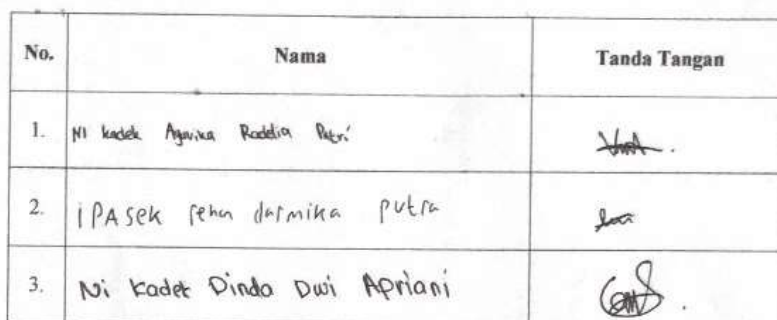 No. Nama Tanda Tangan
1. Ni kadek Agavika Raddia Putri
2. iPAsek rehan darmika putra
3. Ni Kadek Dinda Dwi Apriani